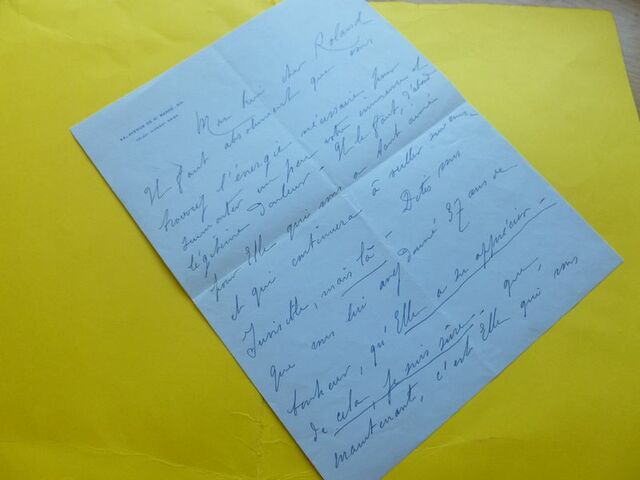 Mon bien cher Roland
Il faut absolument que vous
trouviez l'énergie nécessaire pour
surmonter un peu votre immense et
légitime douleur - Il le faut, d'abord
pour Elle qui vous a tant aimé
et qui continuera à veiller sur vous.
Invisible, mais là - Dites vous
que vous lui avez donné 37 ans de
bonheur, qu'Elle a su apprécier -
de cela, je suis sûre - que,
maintenant, c'est Elle qui vous